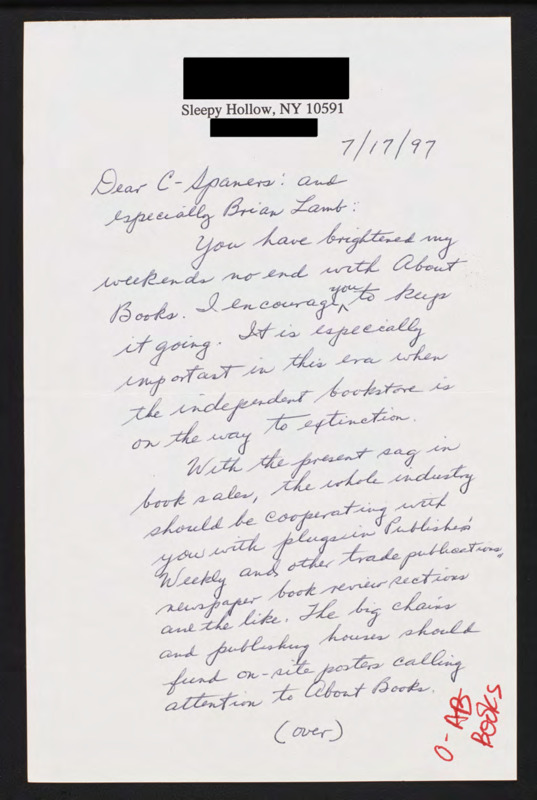 Sleepy Hollow, NY 10591
7/17/97
Dear C-Spaners: and
especially Brian Lamb:
You have brightened my
weekends no end with About
Books. I encourage you to keep
it going. It is especially
important in this era when
the independent bookstore is
on the way to extinction.
With the present sag in
book sales, the whole industry
should be cooperating with
you with plugs in Publisher's
Weekly and other trade publications,
newspaper book review sections
and the like. The big chains
and publishing houses should
fund on-site posters calling
attention to About Books.
(over)
O-AB
BOOKS